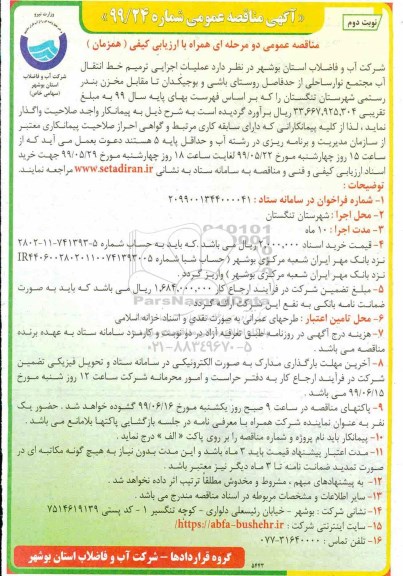 نوبت دوم
«آگهی مناقصه عمومی شماره ۹۹/۲۴»
وزارت نیرو
شرکت آب و فاضلاب
استان بوشهر
(سهامی خاص)
مناقصه عمومی دو مرحله ای همراه با ارزیابی کیفی ( همزمان )
شرکت آب و فاضلاب استان بوشهر در نظر دارد عملیات اجرایی ترمیم خط انتقال
آب مجتمع نوارساحلی از حدفاصل روستای باشی و بوجیکدان تا مقابل مخزن بندر
رستمی شهرستان تنگستان را که بر اساس فهرست بهای پایه سال ۹۹ به مبلغ
تقریبی ۳۳,۶۶۷,۹۲۵,۳۰۴ ریال برآورد گردیده است به شرح ذیل به پیمانکار واجد صلاحیت واگذار
نماید ، لذا از کلیه پیمانکارانی که دارای سابقه کاری مرتبط و گواهی احراز صلاحیت پیمانکاری معتبر
از سازمان مدیریت و برنامه ریزی در رشته آب و حداقل پایه ۵ هستند دعوت بعمل می آید که از
ساعت ۱۵ روز چهارشنبه مورخ ۹۹/۰۵/۲۲ لغایت ساعت ۱۸ روز چهارشنبه مورخ ۹۹/۰۵/۲۹ جهت خرید
اسناد ارزیابی کیفی و فنی و مناقصه به سامانه ستاد به نشانی www.setadiran.ir مراجعه نمایند.
توضیحات :
۱- شماره فراخوان در سامانه ستاد : ۲۰۹۹۰۰۱۳۴۴۰۰۰۰۴۱
۲- محل اجرا : شهرستان تنگستان
۳- مدت اجرا : ۱۰ ماه
۴- قیمت خرید اسناد ۲,۰۰۰,۰۰۰ ریال می باشد .که باید به حساب شماره ۵-۷۴۱۳۹۳-۱۱-۲۸۰۲
نزد بانک مهر ایران شعبه مرکزی بوشهر ( حساب شبا شماره IR۴۴۰۶۰۰۲۸۰۲۰۱۱۰۰۷۴۱۳۹۳۰۰۵
نزد بانک مهر ایران شعبه مرکزی بوشهر ) واریز گردد .
۵- مبلغ تضمین شرکت در فرآیند ارجاع کار ۱,۶۸۴,۰۰۰,۰۰۰ ریال می باشد که باید به صورت
ضمانت نامه بانکی به نفع این شرکت ارائه گردد .
۶- محل تامین اعتبار : طرحهای عمرانی به صورت نقدی و اسناد خزانه اسلامی
۷- هزینه درج آگهی در روزنامه طبق تعرفه آزاد در دو نوبت و کارمزد سامانه ستاد به عهده برنده
مناقصه می باشد .
۸- آخرین مهلت بارگذاری مدارک به صورت الکترونیکی در سامانه ستاد و تحویل فیزیکی تضمین
شرکت در فرآیند ارجاع کار به دفتر حراست و امور محرمانه شرکت ساعت ۱۲ روز شنبه مورخ
۹۹/۰۶/۱۵ می باشد.
۹- پاکتهای مناقصه در ساعت ۹ صبح روز یکشنبه مورخ ۹۹/۰۶/۱۶ گشوده خواهد شد . حضور یک
نفر به عنوان نماینده شرکت همراه با معرفی نامه در جلسه بازگشایی پاکتها بلامانع می باشد .
۱۰- پیمانکار باید نام پروژه و شماره مناقصه را بر روی پاکت « الف » درج نماید .
۱۱- مدت اعتبار پیشنهاد قیمت باید ۳ ماه باشد و این مدت بدون نیاز به هیچ گونه مکاتبه ای در
صورت تمدید ضمانت نامه تا ۳ ماه دیگر نیز معتبر باشد.
۱۲- به پیشنهادهای مبهم ، مشروط و مخدوش مطلقاً ترتیب اثر داده نخواهد شد .
۱۳- سایر اطلاعات و مشخصات مربوطه در اسناد مناقصه مندرج می باشد .
۱۴- نشانی شرکت : بوشهر - خیابان رئیسعلی دلواری - کوچه تنگسیر ۱ - کد پستی ۷۵۱۴۶۱۹۱۳۹
۱۵- سایت اینترنتی شرکت : https://abfa-bushehr.ir/
۱۶- تلفن تماس : ۳۱۶۴۰۰۰۰-۰۷۷
گروه قراردادها – شرکت آب و فاضلاب استان بوشهر
۰۲۱-۸۸۳۴۹۶۷۰-۵